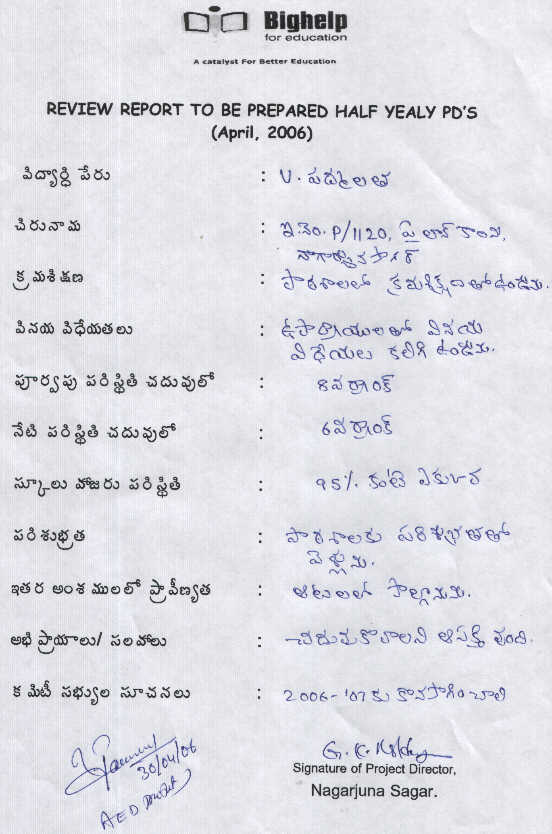 Bighelp
for education
A catalyst For Better Education
REVIEW REPORT TO BE PREPARED HALF YEALY PD'S
(April, 2006)
విద్యార్థి పేరు : V. పద్మలత
చిరునామ : ఇ.నెం. P/1120, పైలాన్ కాలని,
నాగార్జున సాగర్
క్రమశిక్షణ : పాఠశాలలో క్రమశిక్షణతో ఉండును.
వినయ విధేయతలు : ఉపాధ్యాయులతో వినయ
విధేయలు కలిగి ఉండును.
పూర్వపు పరిస్థితి చదువులో : 8వ ర్యాంక్
నేటి పరిస్థితి చదువులో : 6వ ర్యాంక్
స్కూలు హాజరు పరిస్థితి : 95% కంటె ఎక్కువ
పరిశుభ్రత : పాఠశాలకు పరిశుభ్రతతో
వెళ్లును.
ఇతర అంశములలో ప్రావీణ్యత : ఆటలలో పాల్గొనును.
అభిప్రాయాలు/ సలహాలు : చదువుకోవాలని ఆసక్తి వుంది.
కమిటీ సభ్యుల సూచనలు : 2006-'07 కు కొనసాగించాలి
30/04/06
AED
Signature of Project Director,
Nagarjuna Sagar.